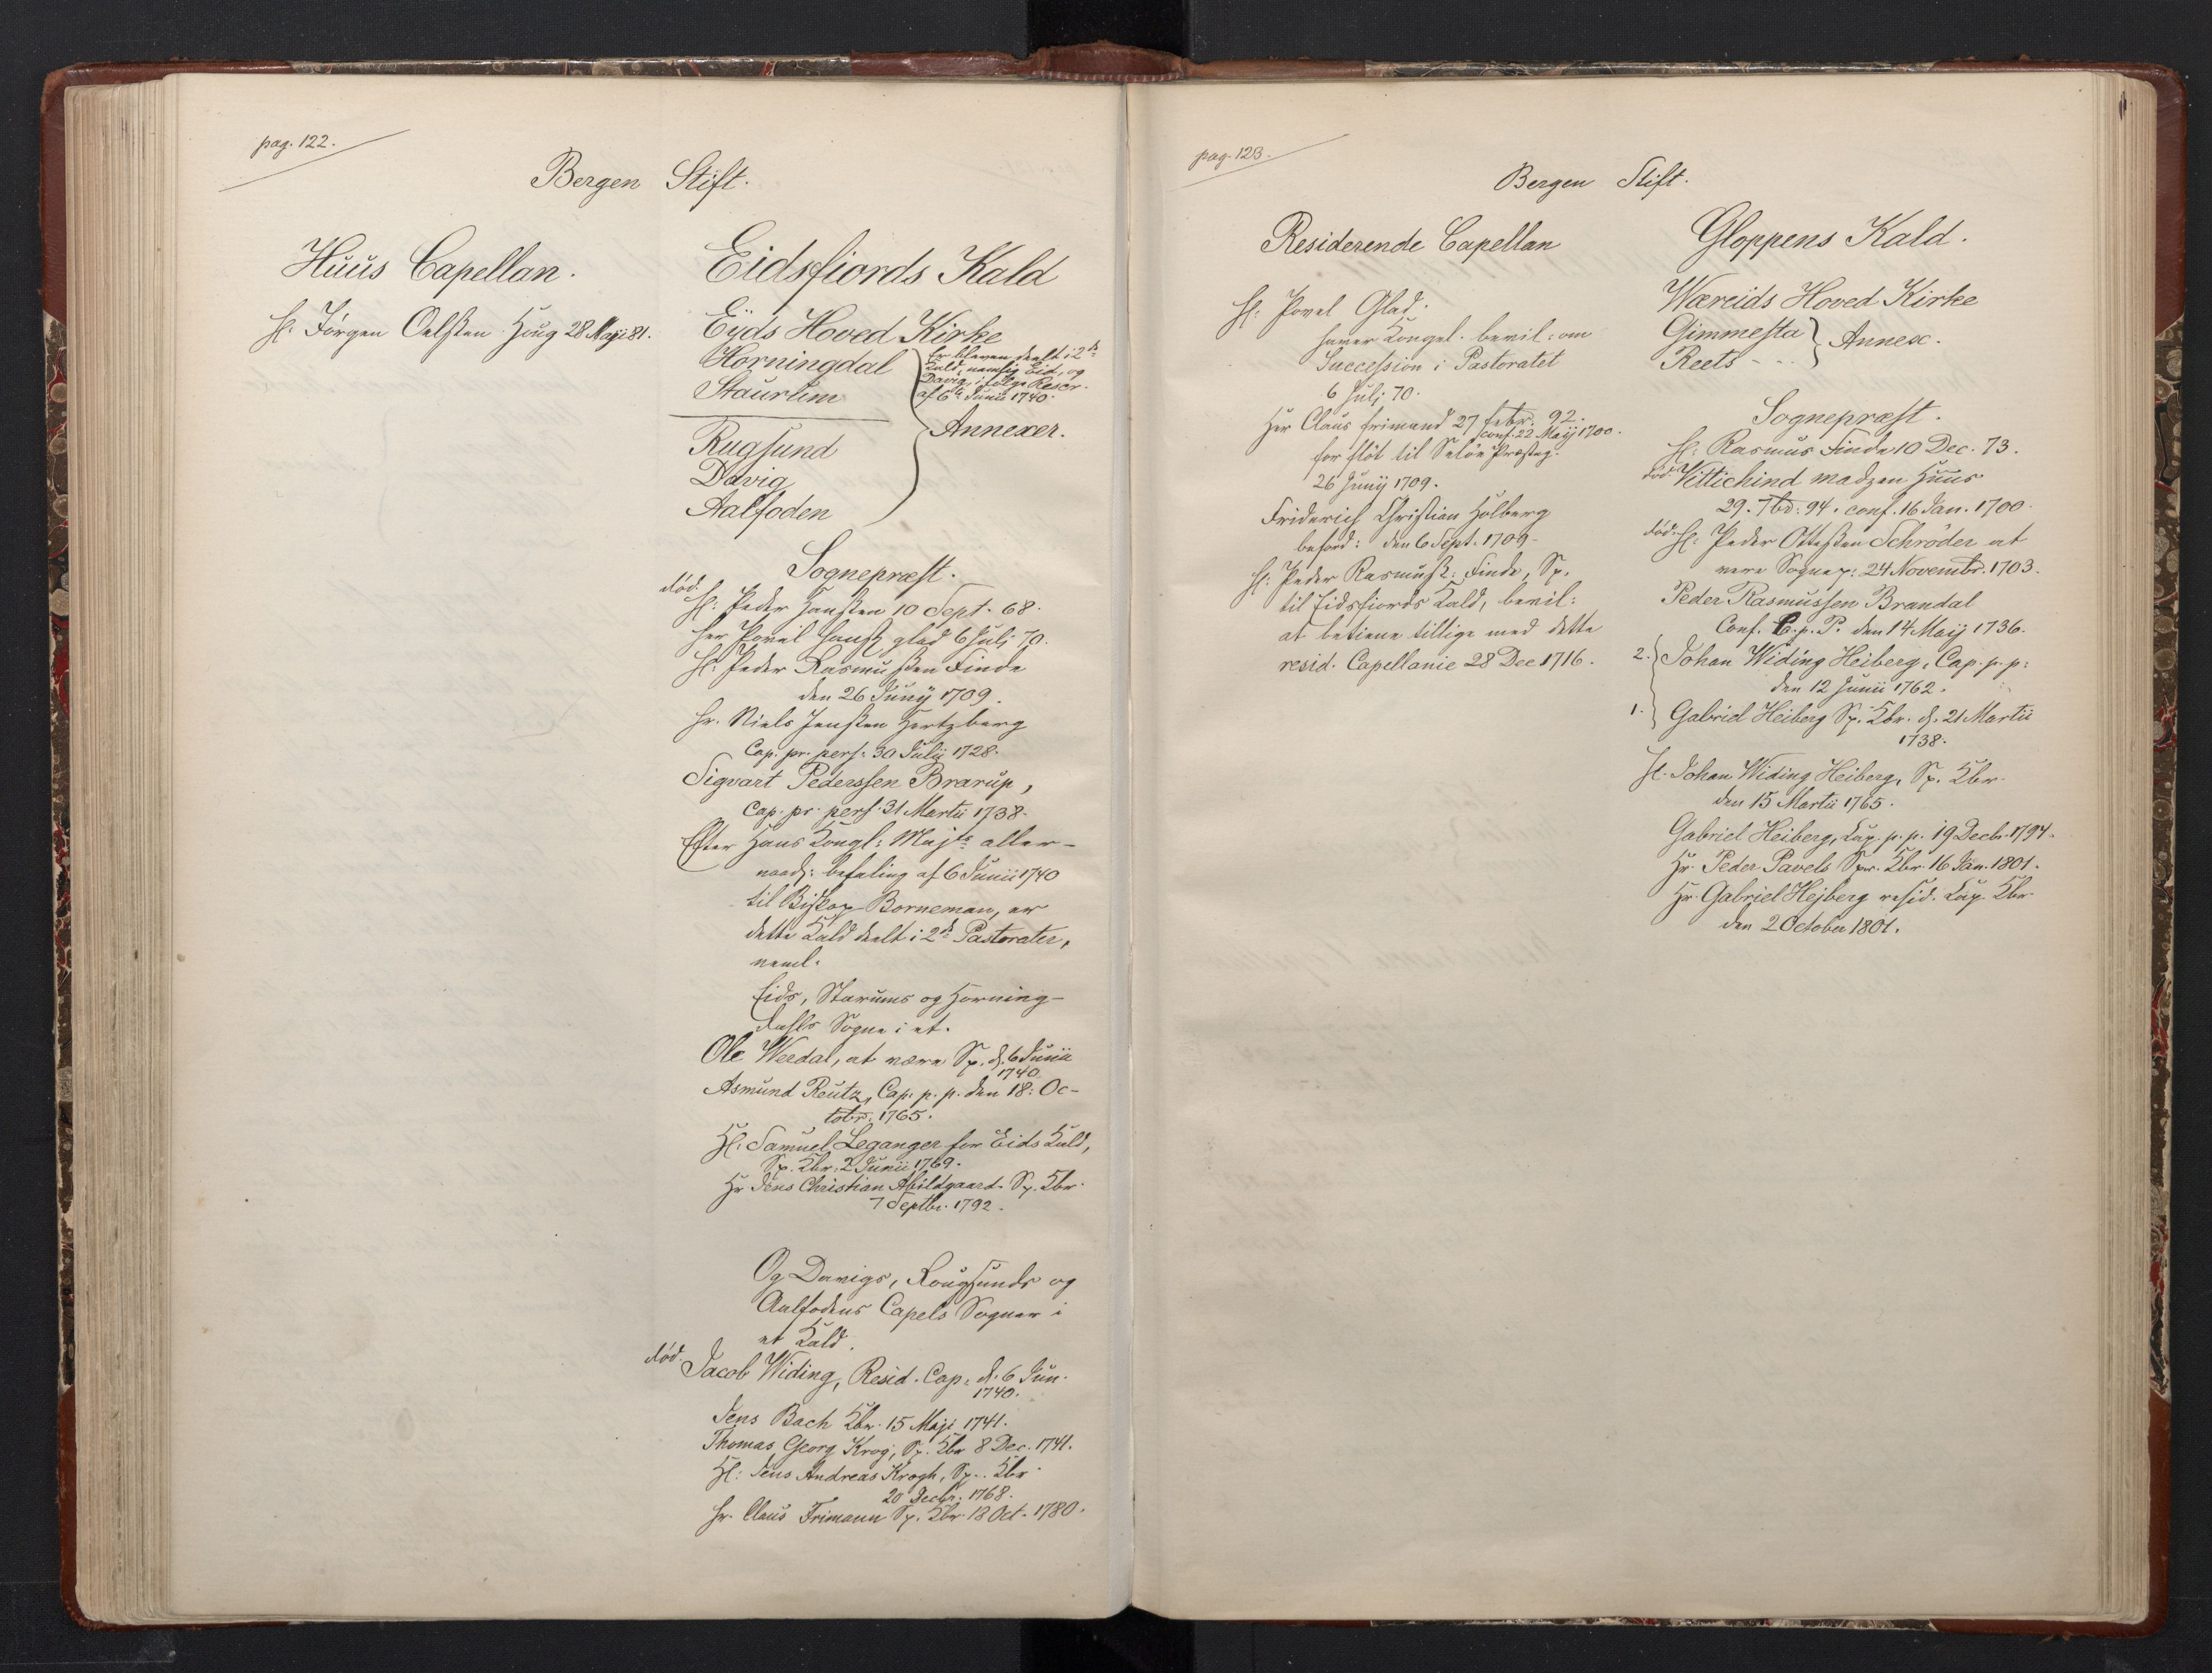 pag. 122.
Bergen Stift.
Huus Capellan.
H: Jørgen Oelssen Houg 28 Maji 81.
Eidsfiords Kald
Eyds Hoved Kirke
Horningdal
Staurhim
Er bleven deelt i 2de
Kald, nemlig Eid, og
Davig, i følge Rescr.
af 6te Junii 1740.
Annexer.
Rugsund
Davig
Aalfoden
Sognepræst.
død.
H: Peder Hanssen 10 Sept. 68.
Her Povel Hanss glad 6 Julj 70.
H: Peder Rasmussen Finde
den 26 Junij 1709.
Hr. Niels Jenssen Hertzberg
Cap. pr. pers. 30 Julii 1728.
Sigvart Pederssen Brarup,
Cap. pr. pers. 31 Martii 1738.
Efter Hans Kongl: Majts aller-
naad: befaling af 6 Junii 1740
til Biskop Borneman, er
dette Kald deelt i 2de Pastorater,
neml.
Eids, Starums og Horning-
dahls Sogne i et.
Ole Werdal, at være Sp. d. 6 Junii
1740.
Asmund Reutz, Cap. p. p. den 18: Oc-
tobr. 1765.
H: Samuel Leganger for Eids Kald,
Sp. Kbr. 2 Junii 1769.
Hr Jens Christian Abildgaard Sp. Kbr.
7 Septbr. 1792.
Og Davigs, Rougsunds og
Aalfodens Capels Sogner i
et Kald.
død. Jacob Widing, Resid. Cap. d. 6 Jun.
1740.
Jens Bach Kbr. 15 Maji 1741.
Thomas Georg Krog, Sp. Kbr 8 Dec. 1741.
H: Jens Andreas Krogh, Sp. Kbr
20 Decbr. 1768.
Hr. Claus Frimann Sp. Kbr. 18 Oct. 1780.
pag. 123.
Bergen Stift.
Residerende Capellan
H: Povel Glad.
haver Kongel. bevil: om
Succession i Pastoratet
6 Julj 70.
Her Claus frimand 27 febr. 92.
conf. 22 Maij 1700.
forflöt til Seløe Præsteg.
26 Junij 1709.
Friderich Christian Holberg
beford: den 6 Sept. 1709.
H: Peder Rasmuss: Finde, Sp.
til Eidsfiords Kald, bevil:
at betiene tillige med dette
resid. Capellanie 28 Dec 1716.
Gloppens Kald.
Wæreids Hoved Kirke
Gimmesta
Reets - - -
Annex.
Sognepræst.
H: Rasmus Finde 10 Dec. 73.
død Vittichind madzen Huus
29. 7br: 94. conf. 16 Jan. 1700.
død. H: Peder Ottessen Schröder at
være Sognep: 24 Novembr. 1703.
Peder Rasmussen Brandal
Conf. C. p. P. den 14 Maij 1736.
2. Johan Widing Heiberg, Cap. p. p:
den 12 Junii 1762.
1. Gabriel Heiberg Sp. Kbr. d. 21 Martii
1738.
H. Johan Widing Heiberg, Sp. Kbr.
den 15 Martii 1765.
Gabriel Heiberg, Cap. p. p. 19 Decbr. 1794.
Hr. Peder Pavels Spr. Kbr. 16 Jan. 1801.
Hr. Gabriel Hejberg resid. Cap. Kbr.
den 2 October 1801.